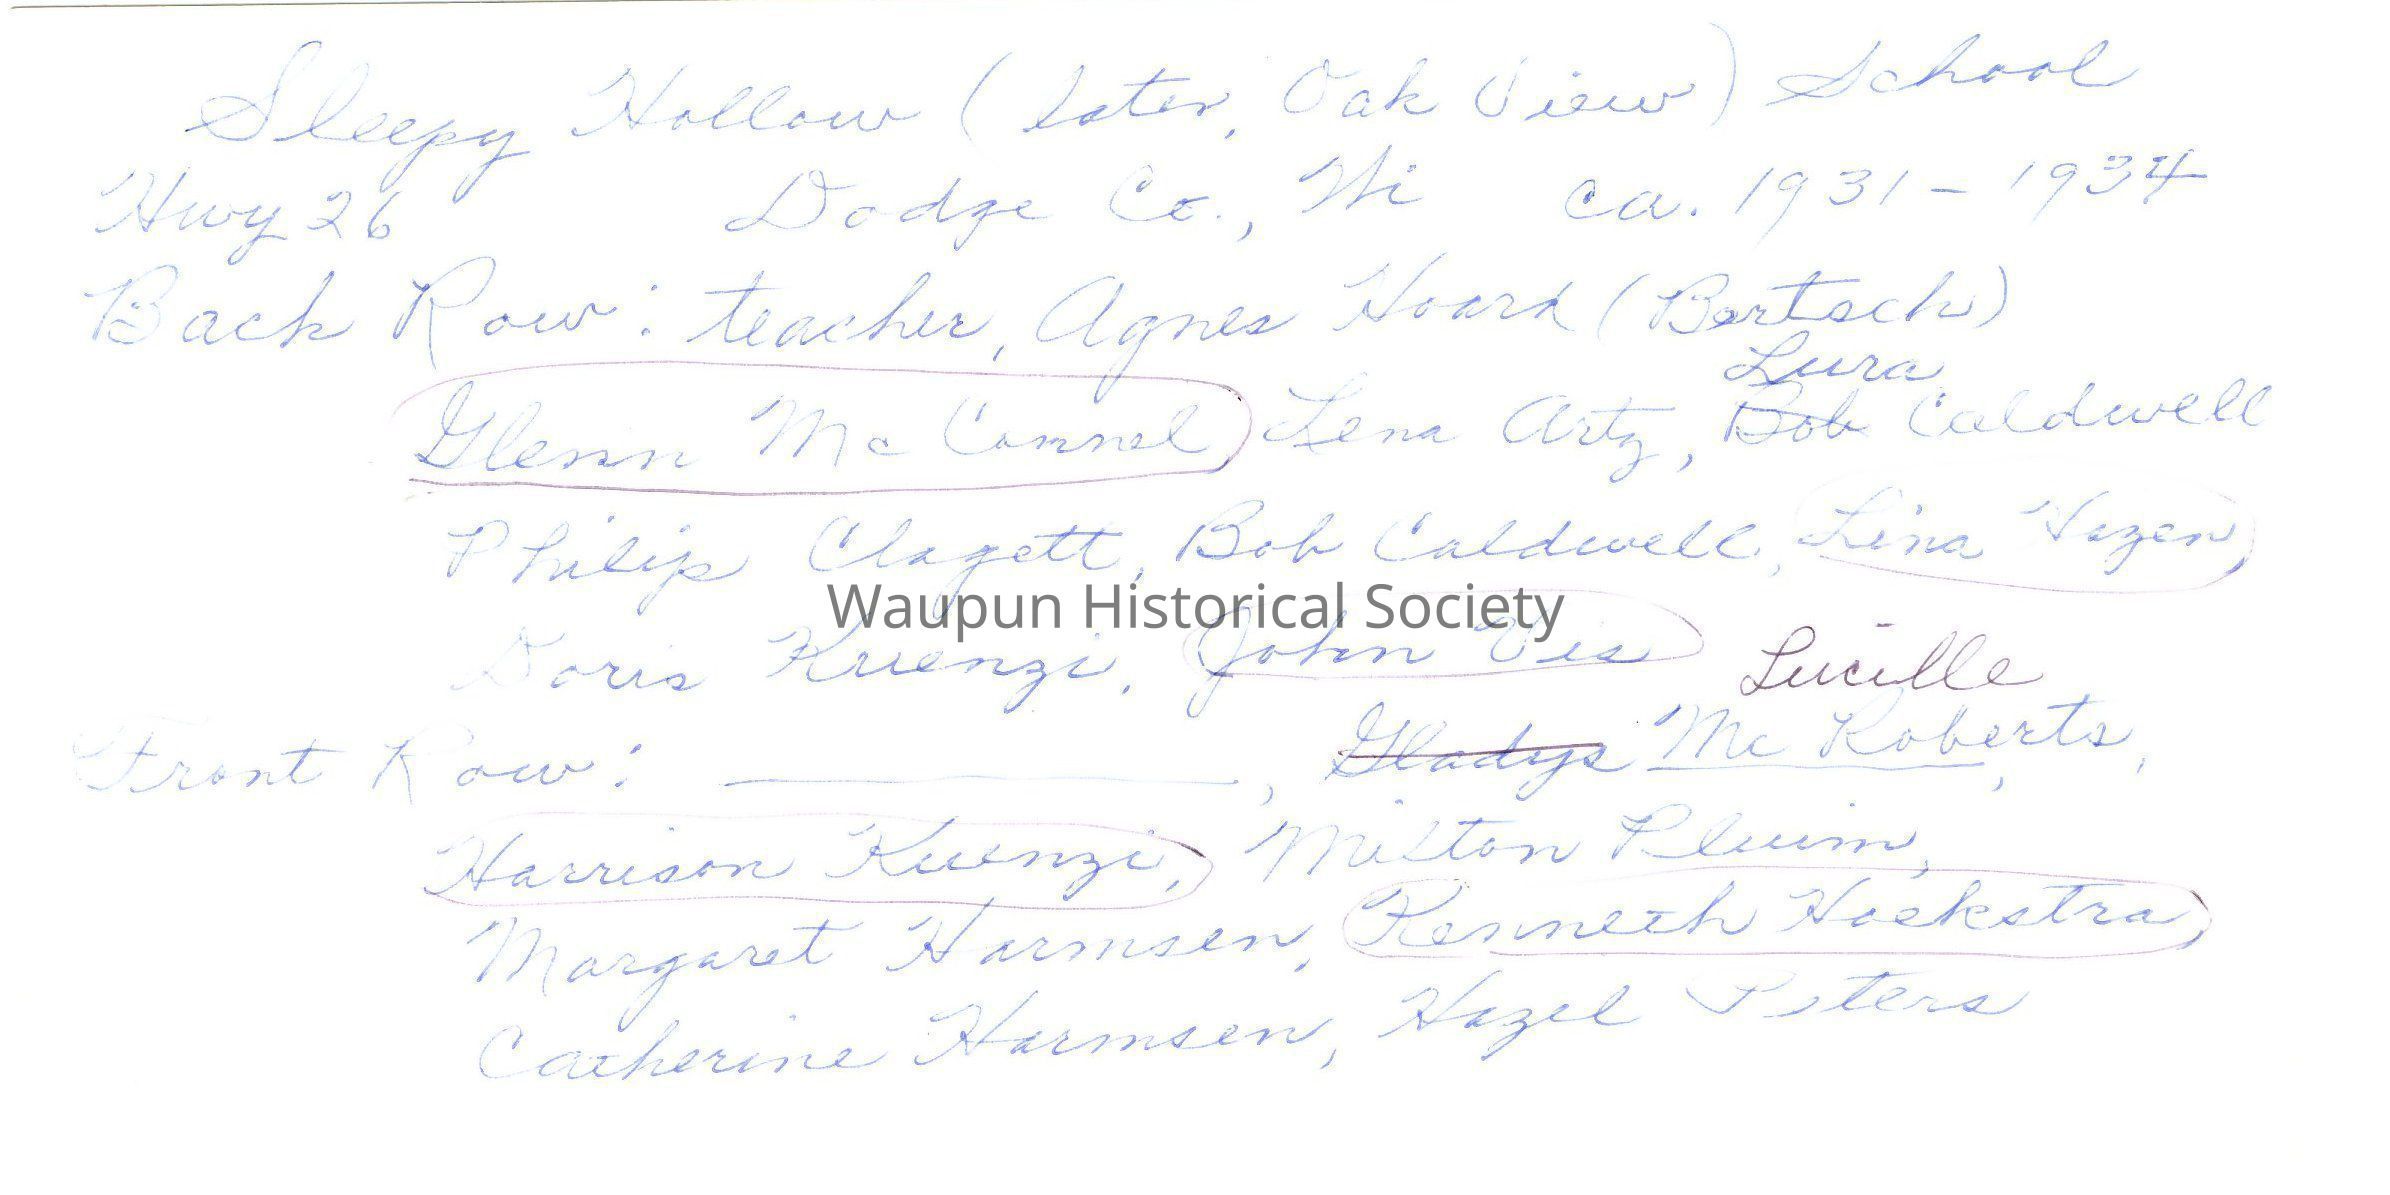 Sleepy Hollow (later, Oak View) School
Hwy 26 Dodge Co., Wi ca. 1931-1934
Back Row: teacher, Agnes Hoard (Bertsch)
Lura
Glenn Mc Connel Lena Artz, Bob Caldwell
Philip Clagett, Bob Caldwell, Lina Hazen,
Waupun Historical Society
Doris Kuenzi, John Vis
Lucille
Front Row: ____, Gladys Mc Roberts,
Harrison Kuenzi, Milton Pluim,
Margaret Harmsen, Kenneth Hoekstra,
Catherine Harmsen, Hazel Peters